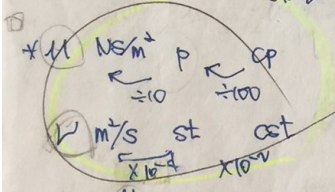 * μ NS/m² P CP
÷10 ÷100
ν m²/s St cst
×10⁻⁴ ×10⁻²